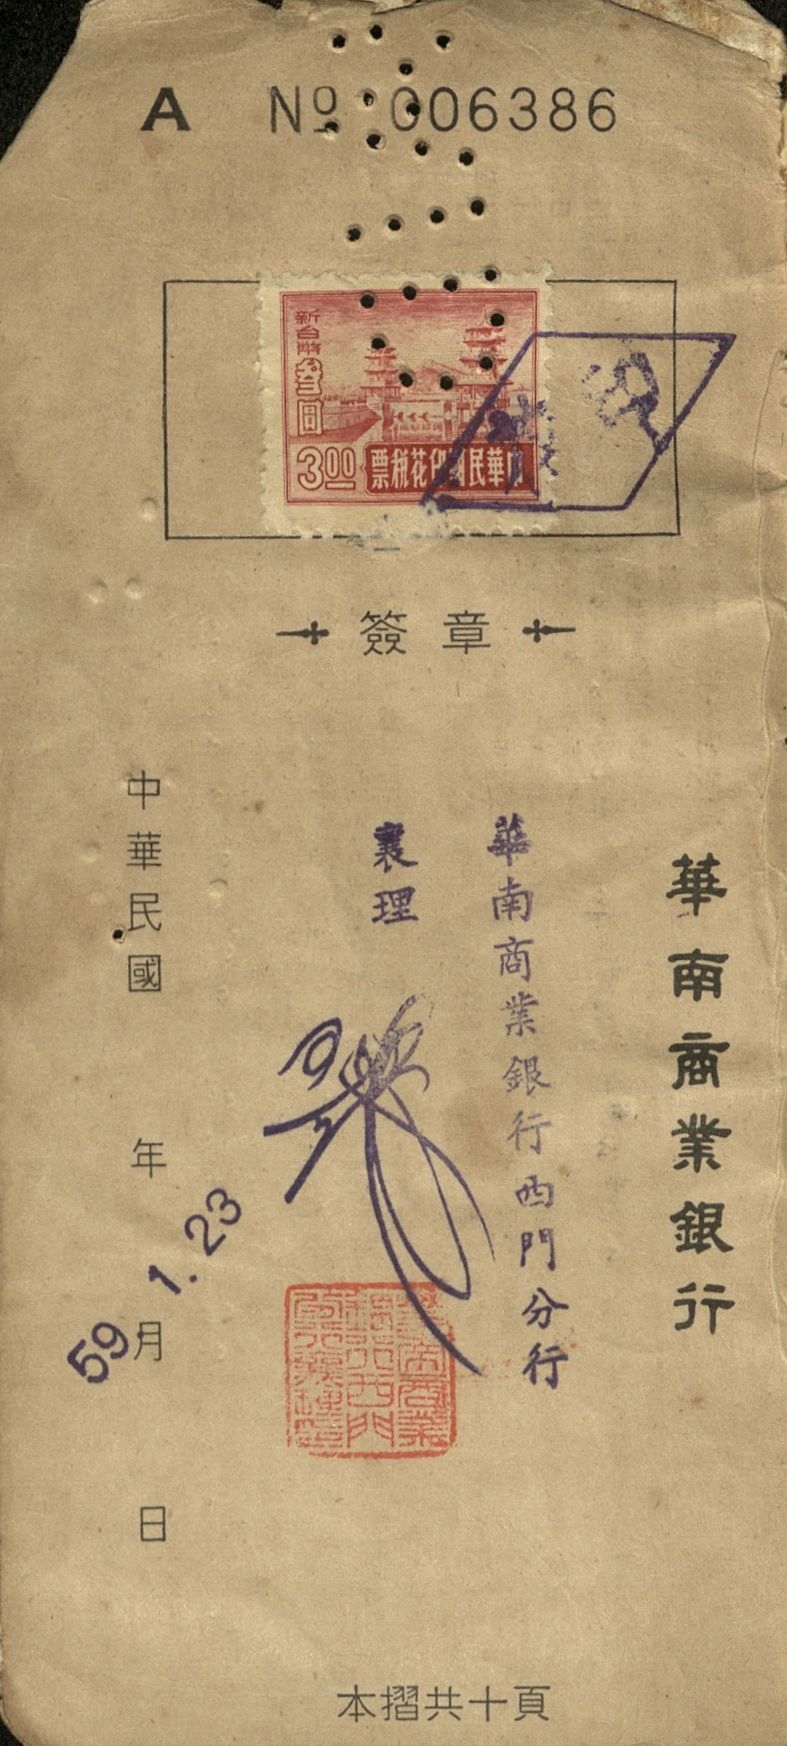 A № 006386
新台幣
叁圓
3.00
中華民國印花稅票
簽章
華南商業銀行
華南商業銀行西門分行
襄理
中華民國 年 月 日
59. 1. 23
本摺共十頁